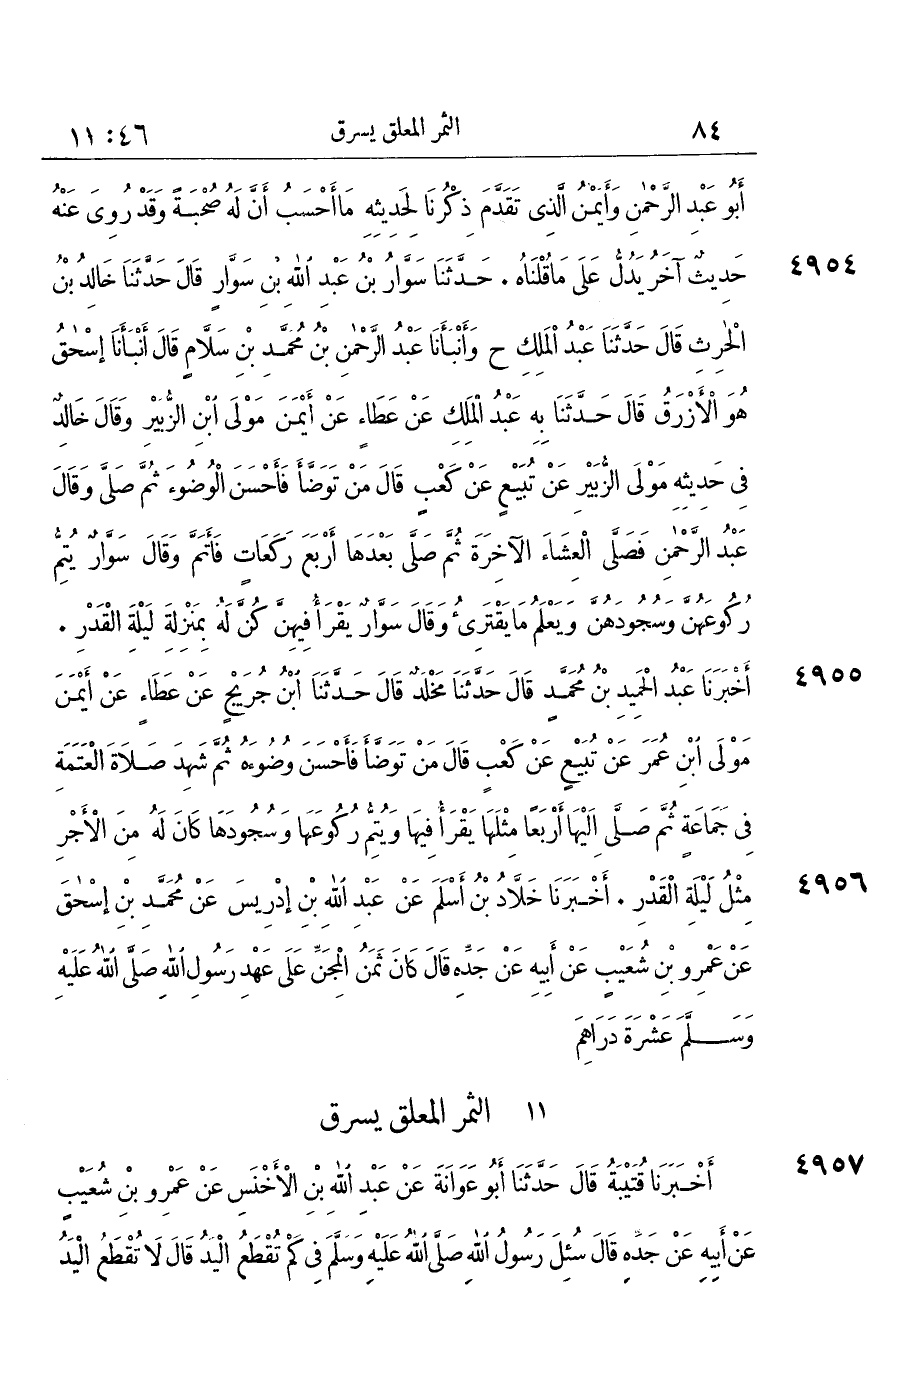 ٨٤ الثمر المعلق يسرق ٤٦ : ١١
أَبُو عَبْدِ الرَّحْمٰنِ وَأَيْمَنُ الَّذِي تَقَدَّمَ ذِكْرُنَا لِحَدِيثِهِ مَا أَحْسَبُ أَنَّ لَهُ صُحْبَةً وَقَدْ رُوِيَ عَنْهُ
٤٩٥٤ حَدِيثٌ آخَرُ يَدُلُّ عَلَى مَا قُلْنَاهُ . حَدَّثَنَا سَوَّارُ بْنُ عَبْدِ اللهِ بْنِ سَوَّارٍ قَالَ حَدَّثَنَا خَالِدُ بْنُ
الْحٰرِثِ قَالَ حَدَّثَنَا عَبْدُ الْمَلِكِ ح وَأَنْبَأَنَا عَبْدُ الرَّحْمٰنِ بْنُ مُحَمَّدِ بْنِ سَلَّامٍ قَالَ أَنْبَأَنَا إِسْحٰقُ
هُوَ الْأَزْرَقُ قَالَ حَدَّثَنَا بِهِ عَبْدُ الْمَلِكِ عَنْ عَطَاءٍ عَنْ أَيْمَنَ مَوْلَى ابْنِ الزُّبَيْرِ وَقَالَ خَالِدٌ
فِي حَدِيثِهِ مَوْلَى الزُّبَيْرِ عَنْ تُبَيْعٍ عَنْ كَعْبٍ قَالَ مَنْ تَوَضَّأَ فَأَحْسَنَ الْوُضُوءَ ثُمَّ صَلَّى وَقَالَ
عَبْدُ الرَّحْمٰنِ فَصَلَّى الْعِشَاءَ الْآخِرَةَ ثُمَّ صَلَّى بَعْدَهَا أَرْبَعَ رَكَعَاتٍ فَأَتَمَّ وَقَالَ سَوَّارٌ يُتِمُّ
رُكُوعَهُنَّ وَسُجُودَهُنَّ وَيَعْلَمُ مَا يَقْتَرِئُ وَقَالَ سَوَّارٌ يَقْرَأُ فِيهِنَّ كُنَّ لَهُ بِمَنْزِلَةِ لَيْلَةِ الْقَدْرِ .
٤٩٥٥ أَخْبَرَنَا عَبْدُ الْحَمِيدِ بْنُ مُحَمَّدٍ قَالَ حَدَّثَنَا مَخْلَدٌ قَالَ حَدَّثَنَا ابْنُ جُرَيْجٍ عَنْ عَطَاءٍ عَنْ أَيْمَنَ
مَوْلَى ابْنِ عُمَرَ عَنْ تُبَيْعٍ عَنْ كَعْبٍ قَالَ مَنْ تَوَضَّأَ فَأَحْسَنَ وُضُوءَهُ ثُمَّ شَهِدَ صَلَاةَ الْعَتَمَةِ
فِي جَمَاعَةٍ ثُمَّ صَلَّى إِلَيْهَا أَرْبَعًا مِثْلَهَا يَقْرَأُ فِيهَا وَيُتِمُّ رُكُوعَهَا وَسُجُودَهَا كَانَ لَهُ مِنَ الْأَجْرِ
٤٩٥٦ مِثْلُ لَيْلَةِ الْقَدْرِ . أَخْبَرَنَا خَلَّادُ بْنُ أَسْلَمَ عَنْ عَبْدِ اللهِ بْنِ إِدْرِيسَ عَنْ مُحَمَّدِ بْنِ إِسْحٰقَ
عَنْ عَمْرِو بْنِ شُعَيْبٍ عَنْ أَبِيهِ عَنْ جَدِّهِ قَالَ كَانَ ثَمَنُ الْمِجَنِّ عَلَى عَهْدِ رَسُولِ اللهِ صَلَّى اللهُ عَلَيْهِ
وَسَلَّمَ عَشْرَةَ دَرَاهِمَ
١١ الثمر المعلق يسرق
٤٩٥٧ أَخْبَرَنَا قُتَيْبَةُ قَالَ حَدَّثَنَا أَبُو عَوَانَةَ عَنْ عَبْدِ اللهِ بْنِ الْأَخْنَسِ عَنْ عَمْرِو بْنِ شُعَيْبٍ
عَنْ أَبِيهِ عَنْ جَدِّهِ قَالَ سُئِلَ رَسُولُ اللهِ صَلَّى اللهُ عَلَيْهِ وَسَلَّمَ فِي كَمْ تُقْطَعُ الْيَدُ قَالَ لَا تُقْطَعُ الْيَدُ